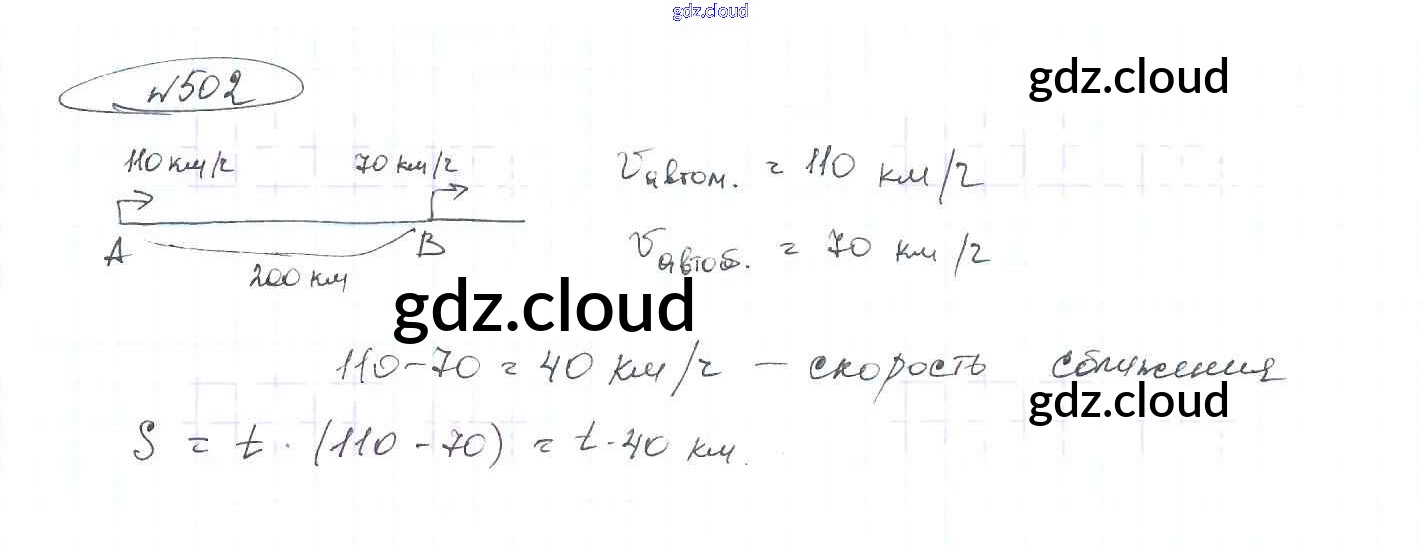 gdz.cloud
gdz.cloud
№502
110 км/ч 70 км/ч
Vавтом. = 110 км/ч
A B
200 км
Vавтоб. = 70 км/ч
gdz.cloud
110-70 = 40 км/ч — скорость сближения
gdz.cloud
S = t · (110-70) = t·40 км.